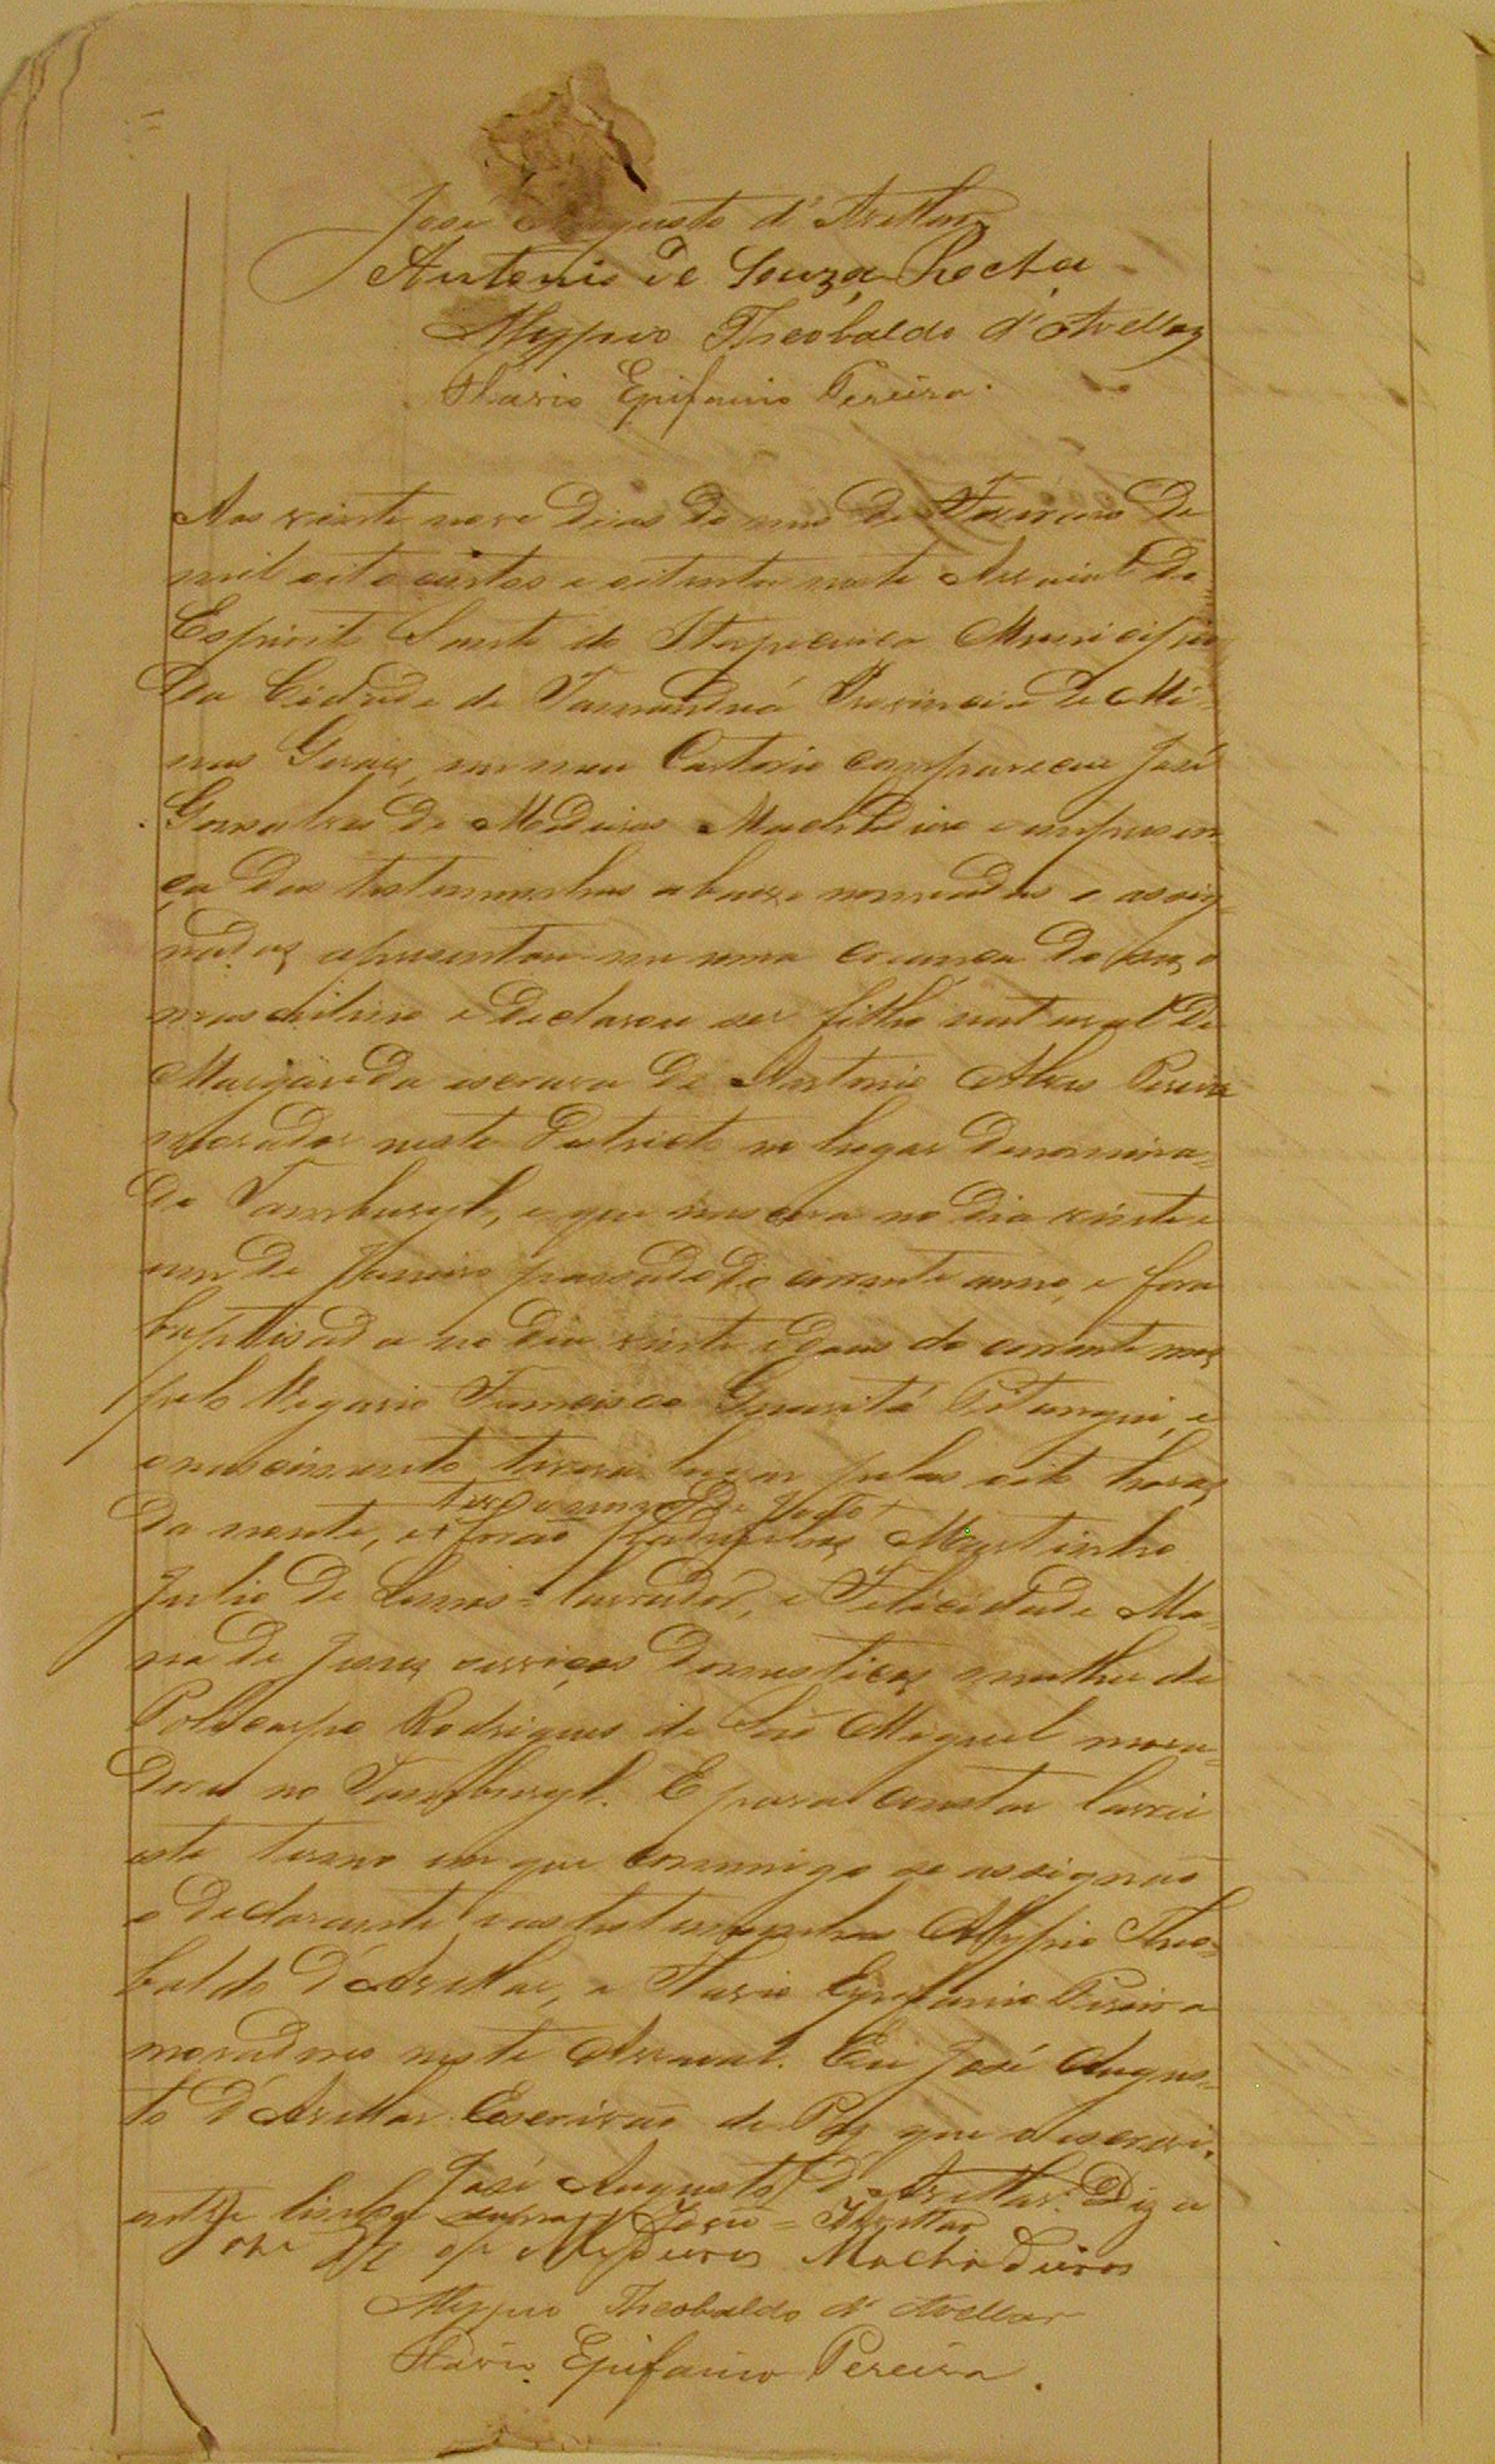 José Augusto d'Avellar
Antonio de Souza Rocha
Alyppio Theobaldo d'Avellar
Flavio Epifanio Pereira.
Aos vinte nove dias do mes de Fevereiro de
mil oito centos e oitenta neste Arraial do
Espirito Santo do Itapecerica Municipio
da Cidade de Tamanduá Provincia de Mi-
nas Geraes, em meu Cartorio compareceu José
Gonçalves de Medeiros Machadinho e em presen
ça das testemunhas abaixo nomeadas e assig-
nadas apresentou-me uma criança do sexo
masculino e declarou ser filho natural de
Margarida escrava de Antonio Alves Pereira
morador neste Districto no lugar denomina-
do Tamburyl, e que nascera no dia vinte e
um de Janeiro passado do corrente anno, e fora
baptisado no dia vinte e dous do corrente mez
pelo Vigario Francisco Guaritá Pitangui, e
o nascimento tivera lugar pelas oito horas
da noute, e forão Padrinhos Martinho
Julio de Lemos = lavrador, e Felicidade Ma-
ria de Jesus serviços domesticos mulher de
Policarpo Rodrigues de São Miguel mora-
dores no Tamburyl. E para constar lavrei
este termo em que commigo se assignão
o declarante e as testemunhas Alyppio Theo-
baldo d'Avellar, e Flavio Epifanio Pereira
moradores neste Arraial. Eu José Augus-
to d'Avellar Escrivão de Paz que o escrevi.
José Augusto d'Avellar. Digo
entre linha Avellar
Medeiros Machadinho
Alyppio Theobaldo d'Avellar
Flavio Epifanio Pereira.